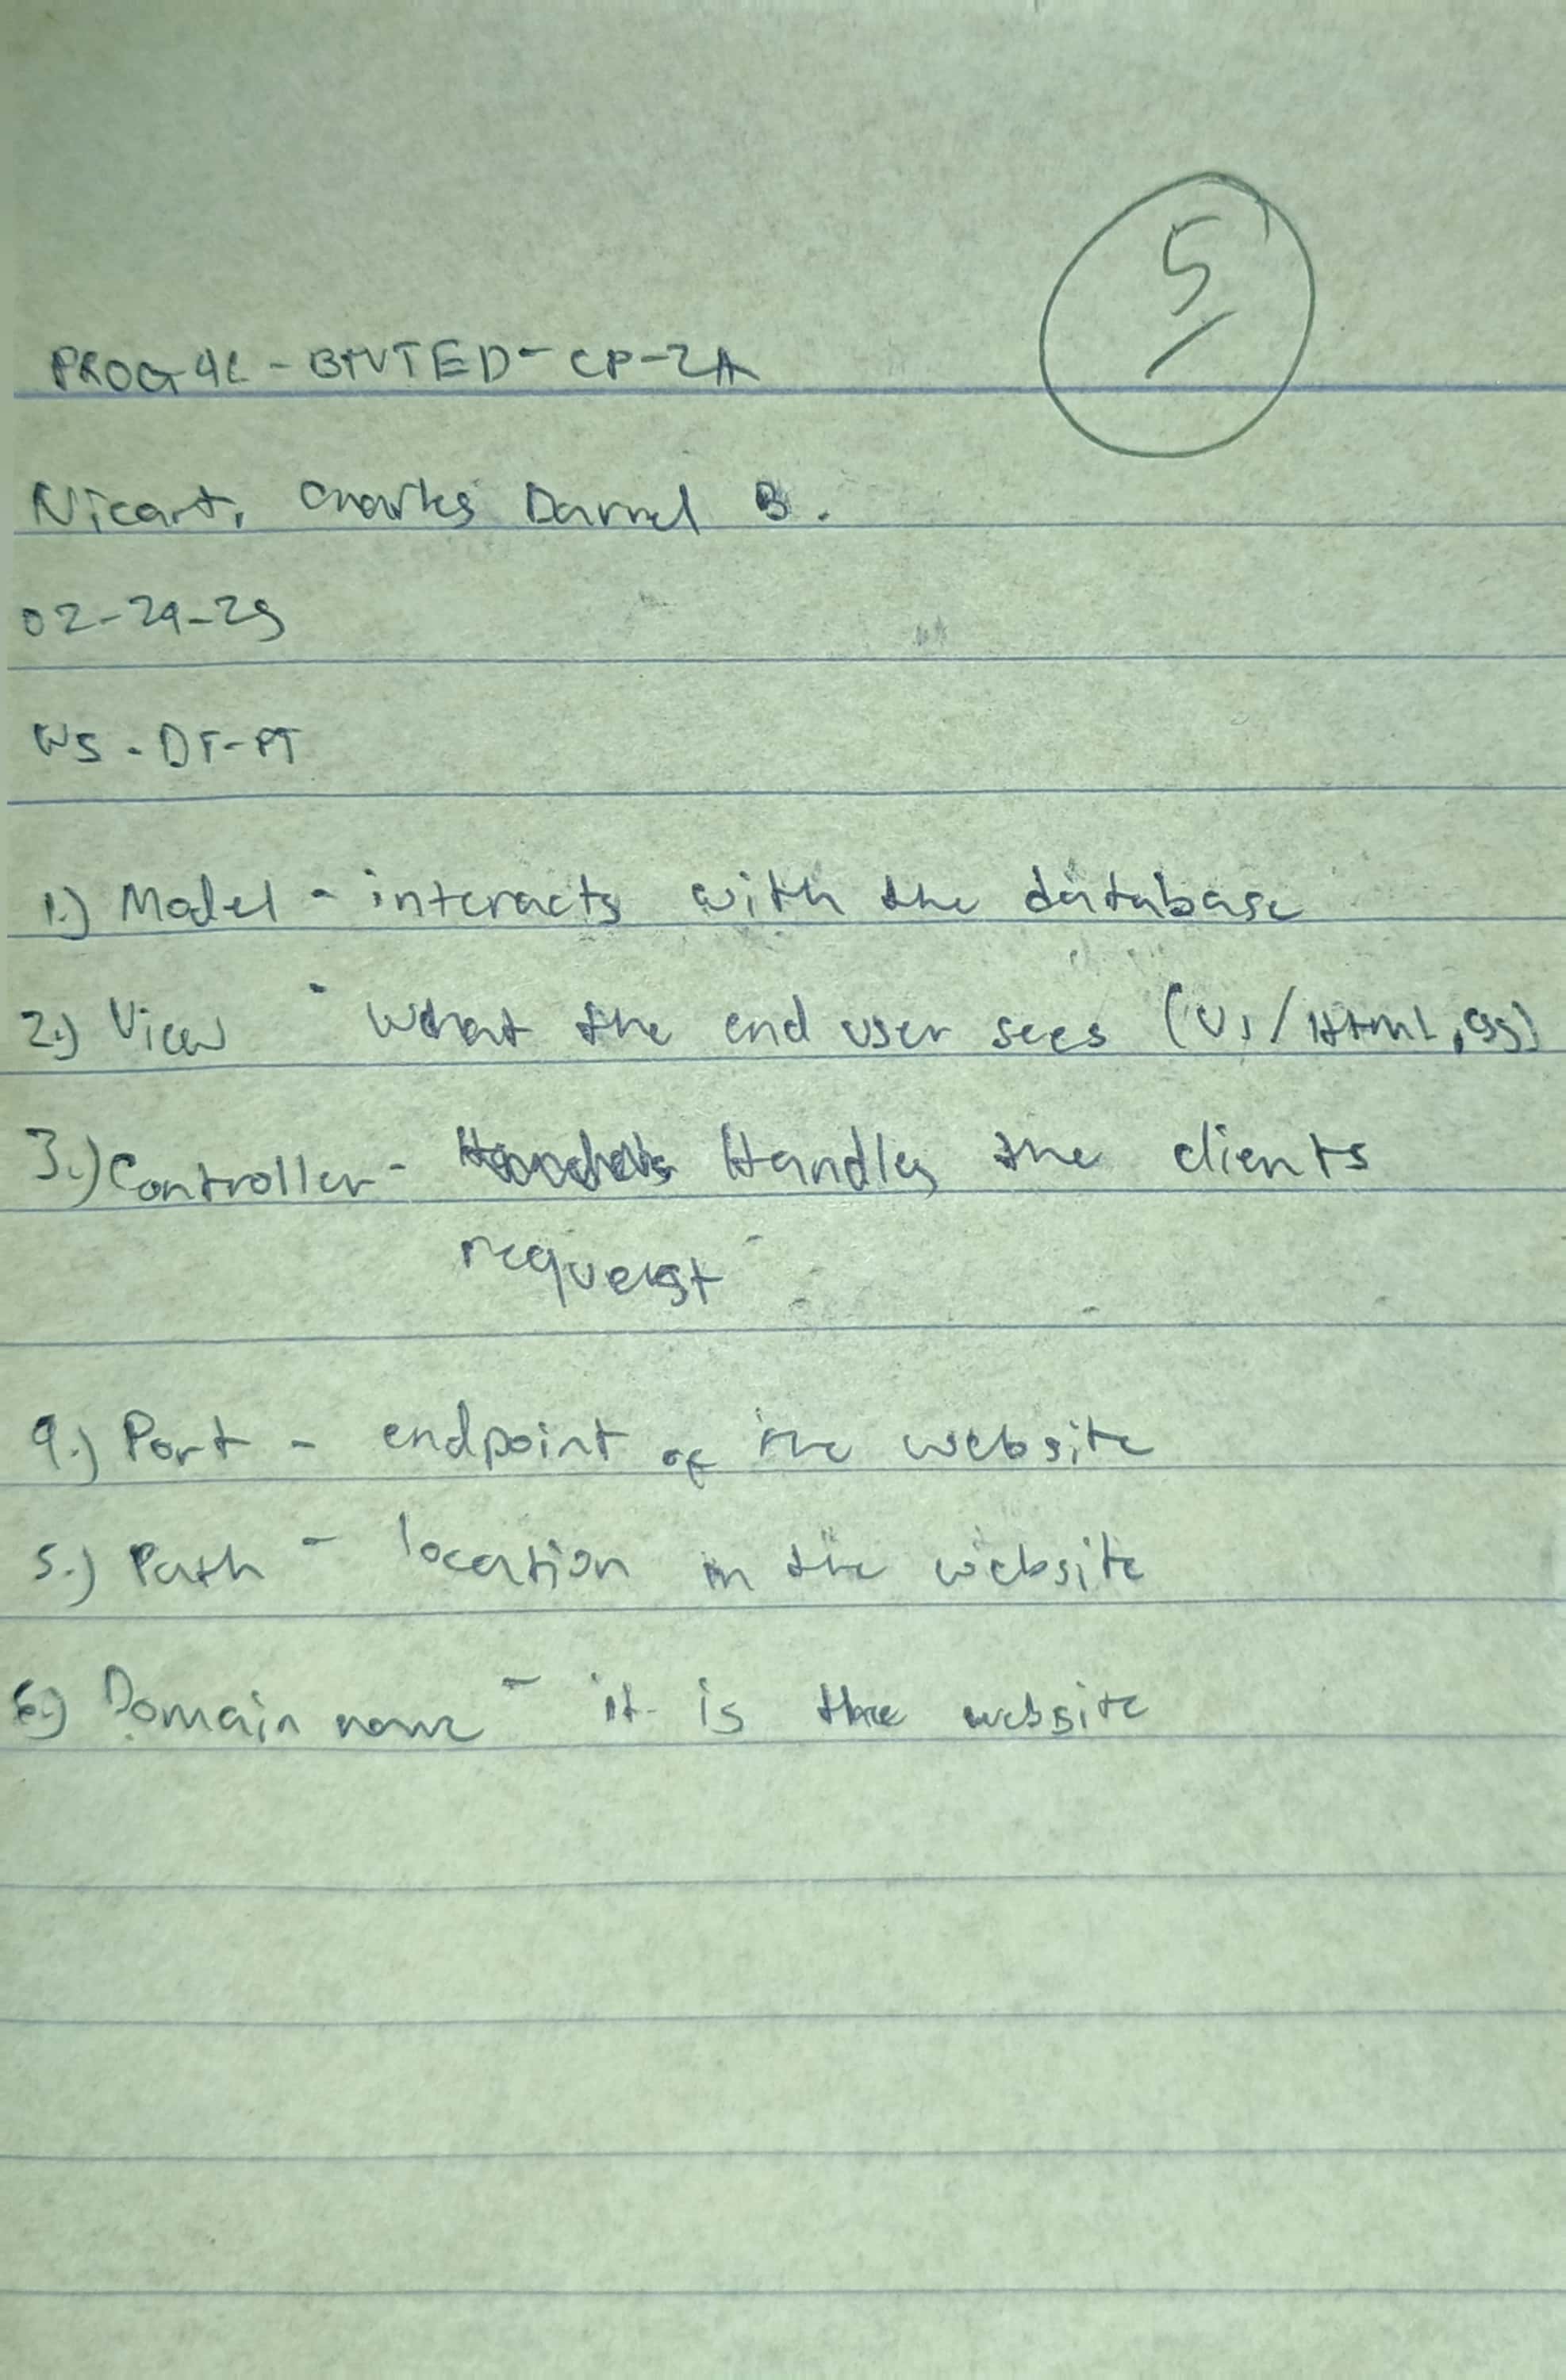 5
PROG4L - BMVTED - CP-2A
Nicart, Charles Darrel B.
02-24-25
WS - DT-PT
1.) Model - interacts with the database
2.) View - What the end user sees (UI/Html,css)
3.) Controller - Handles the clients
request
4.) Port - endpoint of the website
5.) Path - location in the website
6.) Domain name - it is the website